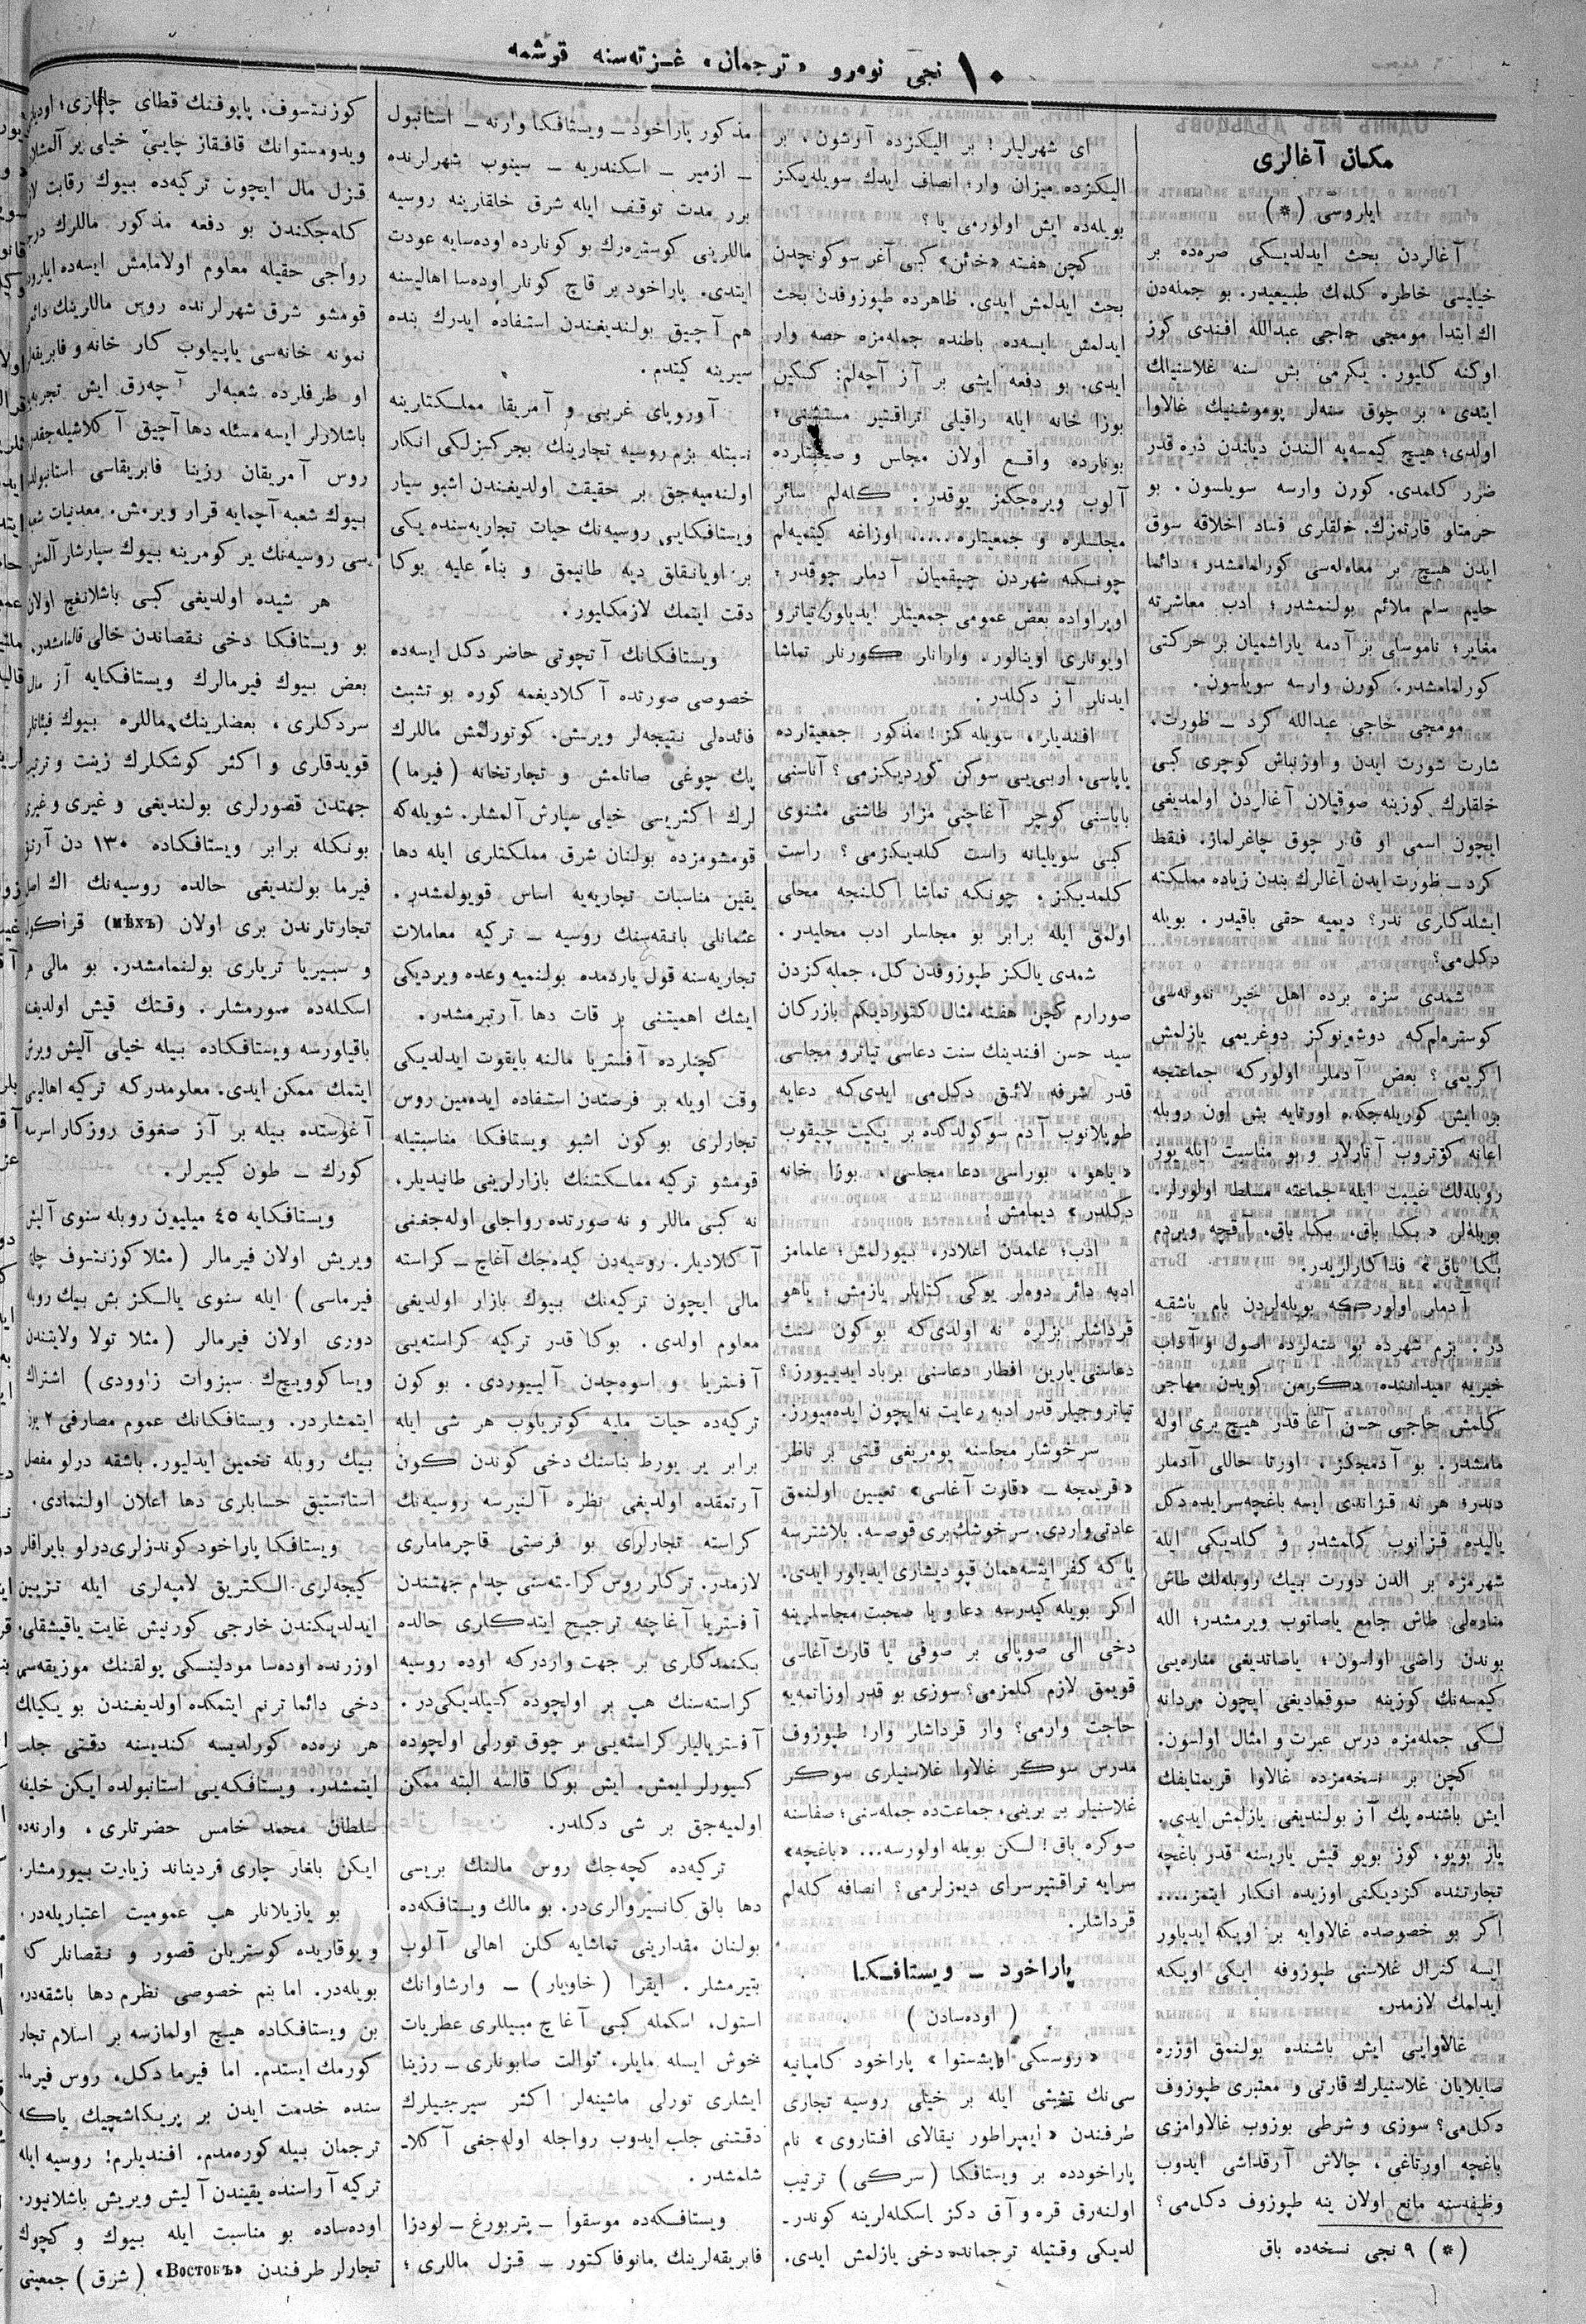 ١٠ نجی نومرو «ترجمان» غزته‌سنه قوشمه
مکمان آغالری
اپاروسی (*)
آغالردن بحث ایدلدیکی صره‌ده بر
خیلیسی خاطره کلمك طبیعیدر. بو جمله‌دن
اك ابتدا مومجی حاجی عبدالله افندی کوز
اوکنه کلیور. یکرمی بش سنه غلاسنیلك
ایتدی، بر چوق سنه‌لر پوموشنیك غالاوا
اولدی؛ هیچ کیمسه‌یه الندن دیلندن ذره قدر
ضرر کلمدی. کورن وارسه سویلسون. بو
حرمتلو قارتمزك. خلقلری فساد اخلاقه سوق
ایدن هیچ بر معامله‌سی کورلمامشدر؛ دائما
حلیم سلم ملائم بولنمشدر؛ ادب معاشرته
مغایر؛ ناموسلی بر آدمه یاراشمیان بر حرکتی
کورلمامشدر. کورن وارسه سویلسون.
مومجی حاجی عبدالله کرد – ظورت،
شارت شورت ایدن و اوزنباش کوچری کبی
خلقلرك کوزینه صوقیلان آغالردن اولمدیغی
ایچون اسمی او قدر چوق چاغرلماز. فقط
کرد – ظورت ایدن آغالرك بندن زیاده مملکته
ایشلدکلری ندر؟ دیمیه حقی باقیدر. بویله
دکلمی؟
شمدی سزه برده اهل خیر نمونه‌سی
کوستره‌لم‌که دوشونوکز دوغریمی یازلمش
اکریمی؟ بعض آدملر اولورکه جماعتجه
بر ایش کوریله‌جکدم اورتایه بش اون روبله
اعانه کوتروب آتارلار و بو مناسبت ایله یوز
روبله‌لك غیبت ایله جماعته مسلط اولورلر.
بویله‌لر «بکا باق، بکا باق، آقچه ویردم
بکا باق» فداکارلریدر.
آدملر اولورکه بویله‌لردن بام باشقه
در. بزم شهرده بوا شته‌لرده اصول و آداب
خیریه میداننده دکرمن کویدن مهاجر
کلمش حاجی حسن آغا قدر هیچ بری اوله
مامشدر. بو آدمجکز، اورتا حاللی آدملر
دندر؛ هر نه قزاندی ایسه باغچه‌سرایده دکل
یالیده قزانوب کلمشدر و کلدیکی ایله
شهرمزه بر الدن دورت بیك روبله‌لك طاش
مناره‌لی طاش جامع یاصاتوب ویرمشدر؛ الله
بوندن راضی اولسون؛ یاصاتدیغی مناره‌یی
کیمسه‌نك کوزینه صوقمادیغی ایچون مردانه
لکی جمله‌مزه درس عبرت و امثال اولسون.
کچن بر نسخه‌مزده غالاوا قریمتایفك
ایش باشنده پك آز بولندیغی یازلمش ایدی.
یاز بویو، کوز بویو قیش یاریسنه قدر باغچه
تجارتنده کزدیکنی اوزیده انکار ایتمز....
اکر بو خصوصده غالاوایه بر اوپکه ایدیلور
ایسه کنرال غلاسنی طپوزوفه ایکی اوپکه
ایدلمك لازمدر.
غالاوایی ایش باشنده بولنمق اوزره
صایلایان غلاسنیلرك قارتی و معتبری طپوزوف
دکلمی؟ سوزی و شرطی بوزوب غالاوامزی
باغچه اورتاغی، چالاش آرقداشی ایدوب
وظیفه‌سنه مانع اولان ینه طپوزوف دکلمی؟
(*) ٩ نجی نسخه‌ده باق
ای شهرلیلر! بر الیکزده آرشون، بر
الیکزده میزان وار؛ انصاف ایدك سویله‌یکز
بویله‌ده ایش اولورمی یا؟
کچن هفته «خائن» کبی آغر سوکونچدن
بحث ایدلمش ایدی. ظاهرده طپوزوفدن بحث
ایدلمش ایسه‌ده باطنده جمله‌مزه حصه وار
ایدی. بو دفعه ایشی بر آز آچه‌لم: کسکین
بوزا خانه ایله راقیلی تراقتیر مستثنی؛
بونلرده واقع اولان مجلس و صحبتلرده
آلوب ویره‌جکمز یوقدر. کله‌لم سائر
مجلسلره و جمعیتلره..... اوزاغه کیتمیه‌لم
چونکه شهردن چیقمیان آدملر چوقدر؛
اوپراواده بعض عمومی جمعیتلر ایدیلور، تیاترو
اویونلری اوینالور. وارانلر کورنلر تماشا
ایدنلر آز دکلدر.
افندیلر، سویله کز! مذکور جمعیتلرده
پاپاسی، اوبیی سوکن کوردیکزمی؟ آناسنی
باباسنی کوچر آغاجنی مزار طاشنی مثنوی
کبی سویلیانه راست کلدیکزمی؟ راست
کلمدیکز. چونکه تماشا اکلنجه محلی
اولمق ایله برابر بو مجلسلر ادب محلیدر.
شمدی یالکز طپوزوفدن کل، جمله‌کزدن
صورارم کچن هفته مثال کتوردیکم بازرکان
سید حسن افندینك سنت دعاسی تیاترو مجلسی
قدر شرفه لائق دکلمی ایدی‌که دعایه
طوپلانوب آدم سوکولدکده بر یکیت چیقوب
«یاهو، بوراسی دعا مجلسی، بوزا خانه
دکلدر» دیمامش!
ادب؛ علمدن اعلادر، بیورلمش؛ علمامز
ادبه دائر دوه‌لر یوکی کتابلر یازمش؛ یاهو
قرداشلر بزلره نه اولدی‌که بو کون سنت
دعاسنی یارین افطار دعاسنی برباد ایدییورز؟
تیاتروجیلر قدر ادبه رعایت نه‌ایچون ایده‌میورز.
سرخوشلر مجلسنه یومریغی قتی بر ناظر
«قریمجه – «قارت آغاسی» تعیین اولنمق
عادتی واردی. سرخوشك بری قوصسه، بلاشترسه
یا که کفر ایتسه همان قپو دیشاری ایدیلور ایدی.
اکر بویله کیدرسه دعا و یا صحبت مجلسلرینه
دخی الی صوپالی بر صوفی یا قارت آغاسی
قویمق لازم کلمزمی؟ سوزی بو قدر اوزاتمه‌یه
حاجت وارمی؟ وار قرداشلر وار! طپوزوف
مدرس سوکر غالاوا غلاسنیلری سوکر
غلاسنیلر بر برینی، جماعت‌ده جمله‌سنی؛ صفاسنه
صوکره باق! لکن بویله اولورسه... «باغچه»
سرایه تراقتیرسرای دیمزلرمی؟ انصافه کله‌لم
قرداشلر.
پاراخود – ویستافکا
(اوده‌سادن)
«روسکی اوبشستوا» پاراخود کامپانیه
سی‌نك تشبثی ایله بر خیلی روسیه تجاری
طرفندن «ایمپراطور نیقالای افتاروی» نام
پاراخودده بر ویستافکا (سرکی) ترتیب
اولنه‌رق قره و آق دکز اسکله‌لرینه کوندر‌ـ
لدیکی وقتیله ترجمانده دخی یازلمش ایدی.
مذکور پاراخود – ویستافکا وارنه – استانبول
– ازمیر – اسکندریه – سینوب شهرلرنده
برر مدت توقف ایله شرق خلقلرینه روسیه
ماللرینی کوستره‌رك بو کونلرده اوده‌سایه عودت
ایتدی. پاراخود بر قاچ کونلر اوده‌سا اهالیسنه
هم آچیق بولندیغیندن استفاده ایدرك بنده
سیرینه کیتدم.
آوروپای غربی و آمریقا مملکتلرینه
نسبتله بزم روسیه تجارینك بجرکسزلکی انکار
اولنه‌میه‌جق بر حقیقت اولدیغندن اشبو سیار
ویستافکایی روسیه‌نك حیات تجاریه‌سنده یکی
بر اویانقلق دیه طانیمق و بناءً علیه بوکا
دقت ایتمك لازمکلیور.
ویستافکانك آتچوتی حاضر دکل ایسه‌ده
خصوصی صورتده آکلادیغمه کوره بو تشبث
فائده‌لی نتیجه‌لر ویرمش. کوتورلمش ماللرك
پك چوغی صاتلمش و تجارتخانه (فیرما)
لرك اکثریسی خیلی سپارش آلمشلر. شویله‌که
قومشومزده بولنان شرق مملکتلری ایله دها
یقین مناسبات تجاریه‌یه اساس قویولمشدر.
عثمانلی بانقه‌سنك روسیه – ترکیه معاملات
تجاریه‌سنه قول یاردمده بولنمیه وعده ویردیکی
ایشك اهمیتنی بر قات دها آرتیرمشدر.
کچنلرده آفستریا مالنه بایقوت ایدلدیکی
وقت اویله بر فرصتدن استفاده ایده‌مین روس
تجارلری بو کون اشبو ویستافکا مناسبتیله
قومشو ترکیه مملکتنك بازارلرینی طانیدیلر،
نه کبی ماللر و نه صورتده رواجلی اوله‌جغنی
آکلادیلر. روسیه‌دن کیده‌جك آغاج – کراسته
مالی ایچون ترکیه‌نك بیوك بازار اولدیغی
معلوم اولدی. بوکا قدر ترکیه کراسته‌یی
آفستریا و اسوه‌چدن آلییوردی. بو کون
ترکیه‌ده حیات ملیه کوتریلوب هر شی ایله
برابر یر یورط بناسنك دخی کوندن کون
آرتمقده اولدیغی نظره آلنیرسه روسیه‌نك
کراسته تجارلری بو فرصتی قاچرمامالری
لازمدر. ترکلر روس کراسته‌سنی چدام جهتندن
آفستریا آغاچنه ترجیح ایتدکلری حالده
بکنمدکلری بر جهت واردرکه اوده روسیه
کراسته‌سنك هپ بر اولچوده کسیلدیکی‌در.
آفستریالیلر کراسته‌یی بر چوق تورلی اولچوده
کسیورلر ایمش. ایش بوکا قالسه البته ممکن
اولمیه‌جق بر شی دکلدر.
ترکیه‌ده کچه‌جك روس مالنك بریسی
دها بالق کانسیروالری‌در. بو مالك ویستافکه‌ده
بولنان مقدارینی تماشایه کلن اهالی آلوب
بتیرمشلر. ایقرا (خاویار) – وارشاوانك
استول، اسکمله کبی آغاچ مبیللری عطریات
خوش ایسله مایلر، توالت صابونلری – رزینا
ایشلری تورلی ماشینه‌لر اکثر سیرجیلرك
دقتنی جلب ایدوب رواجله اوله‌جغی آکلا‌ـ
شلمشدر.
ویستافکه‌ده موسقوا – پتربورغ – لودزا
فابریقه‌لرینك مانوفاکتور – قزل ماللری؛
کوزنتسوف، پاپوفنك قطای چایلری؛
ویدومستوانك قافقاز چایی خیلی یر آلمشلر
قزل مال ایچون ترکیه‌ده بیوك رقابت
کله‌جکندن بو دفعه مذکور ماللرك
رواجی حقیله معلوم اولامامش ایسه‌ده ایلروده
قومشو شرق شهرلرنده روس ماللرینك
نمونه خانه‌سی یاپیلوب کار خانه و فابریقه‌لر
او طرفلرده شعبه‌لر آچه‌رق ایش
باشلارلر ایسه مسئله دها آچیق آکلاشیله‌جقدر
روس آمریقان رزینا فابریقاسی استانبولده
بیوك شعبه آچمایه قرار ویرمش. معدنیات
سی روسیه‌نك یر کومرینه بیوك سپارشلر آلمش.
هر شیده اولدیغی کبی باشلانغج اولان
بو ویستافکا دخی نقصاندن خالی قالمامشدر.
بعض بیوك فیرمالرك ویستافکایه آز مال
سردکلری، بعضلرینك ماللره بیوك فیئاتلر
قویدقلری و اکثر کوشکلرك زینت و ترتیب
جهتدن قصورلری بولندیغی و غیری و غیری
بونکله برابر ویستافکاده ١٣٠ دن آرتق
فیرما بولندیغی حالده روسیه‌نك اك اصل
تجارتلرندن بری اولان (мѣхъ)
و سبیریا تریلری بولنمامشدر. بو مالی هر
اسکله‌ده صورمشلر. وقتك قیش اولدیغنه
باقیلورسه ویستافکاده بیله خیلی آلیش ویرش
ایتمك ممکن ایدی. معلومدرکه ترکیه اهالیسی
آغوستده بیله بر آز صغوق روزکار اسرسه
کورك – طون کییرلر.
ویستافکایه ٤٥ میلیون روبله سنوی آلیش
ویریش اولان فیرمالر (مثلا کوزنتسوف چای
فیرماسی) ایله سنوی یالکز بش بیك روبله
دوری اولان فیرمالر (مثلا تولا ولایتندن
ویساکوویچك سبزوات زاوودی) اشتراك
ایتمشلردر. ویستافکانك عموم مصارفی ٢ یوز
بیك روبله تخمین ایدلیور. باشقه درلو مفصل
استاتستیق حسابلری دها اعلان اولنمادی.
ویستافکا پاراخود کوندزلری درلو بایراقلر
کیجه‌لری الکتریق لامپه‌لری ایله تزیین
ایدلدیکندن خارجی کورنیش غایت یاقیشقلی.
اوزرنده اوده‌سا مودلینسکی پولقنك موزیقه‌سی
دخی دائما ترنم ایتمکده اولدیغندن بو یکیلك
هر نره‌ده کورلدیسه کندیسنه دقتی جلب
ایتمشدر. ویستافکه‌یی استانبولده ایکن خلیفه
سلطان محمد خامس حضرتلری، وارنه‌ده
ایکن بلغار چاری فردیناند زیارت بیورمشلر.
بو یازیلانلر هپ عمومیت اعتباریله‌در.
و یوقاریده کوستریلن قصور و نقصانلر کذا
بویله‌در. اما بنم خصوصی نظرم دها باشقه‌در.
بن ویستافکاده هیچ اولمازسه بر اسلام تجار
کورمك ایستدم. اما فیرما دکل، روس فیرما‌
سنده خدمت ایدن بر پریکاشچیك یاکه
ترجمان بیله کوره‌مدم. افندیلرم! روسیه ایله
ترکیه آراسنده یقیندن آلیش ویریش باشلانیور.
اوده‌ساده بو مناسبت ایله بیوك و کچوك
تجارلر طرفندن «Востокъ» (شرق) جمعیتی